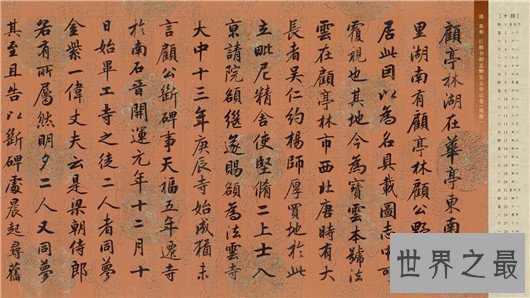 顧亭林湖在華亭東南
里湖南有顧亭林顧公野
居此因以為名具載圖志中可
覆視也其地今為寶雲本號法
雲在顧亭林市西北唐時有大
長者吳仁約楊師厚買地於此
立毗尼精舍使堅脩二上士入
京請院額繼遂賜額為法雲寺
大中十三年庚辰寺始成猶未
言顧公斷碑事天福五年遷寺
於南石晉開運元年十二月十
日始畢工寺之徒二人者同夢
金紫一偉丈夫云是梁朝侍郎
若有所屬然明夕二人又同夢
其至且告以斷碑處晨起尋舊
世界之最